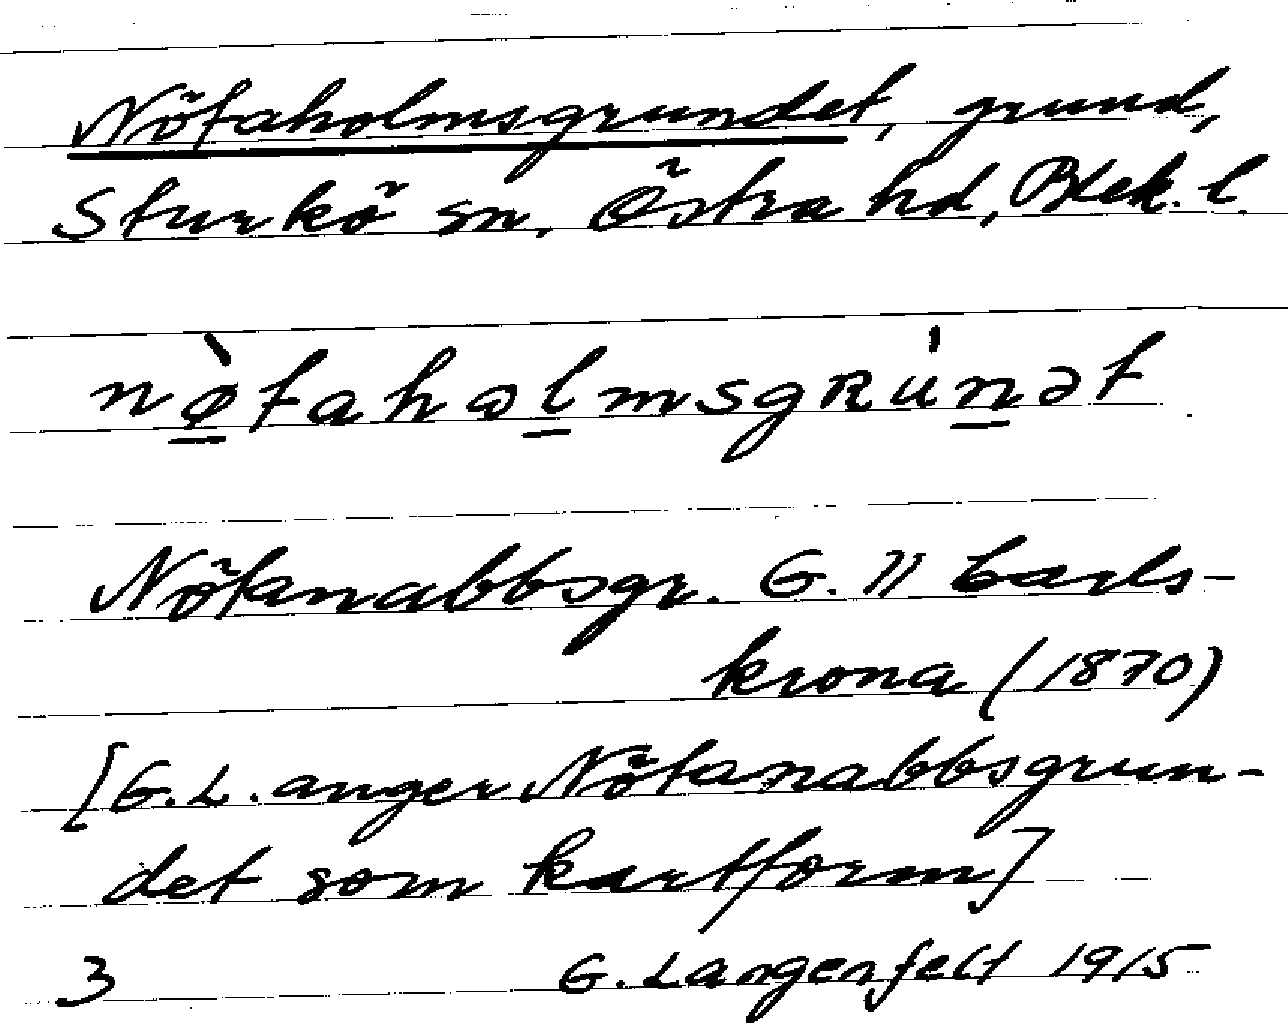 Nötaholmsgrundet, grund,
Sturkö sn, Östra hd, Blek. l.
nø̲̀tahɷl̲msgʀu̍n̲ət
Nötanabbsgr. G. 71 Carls-
krona (1870)
[G.L. anger Nötanabbsgrun-
det som kartform]
3 G. Langenfelt 1915